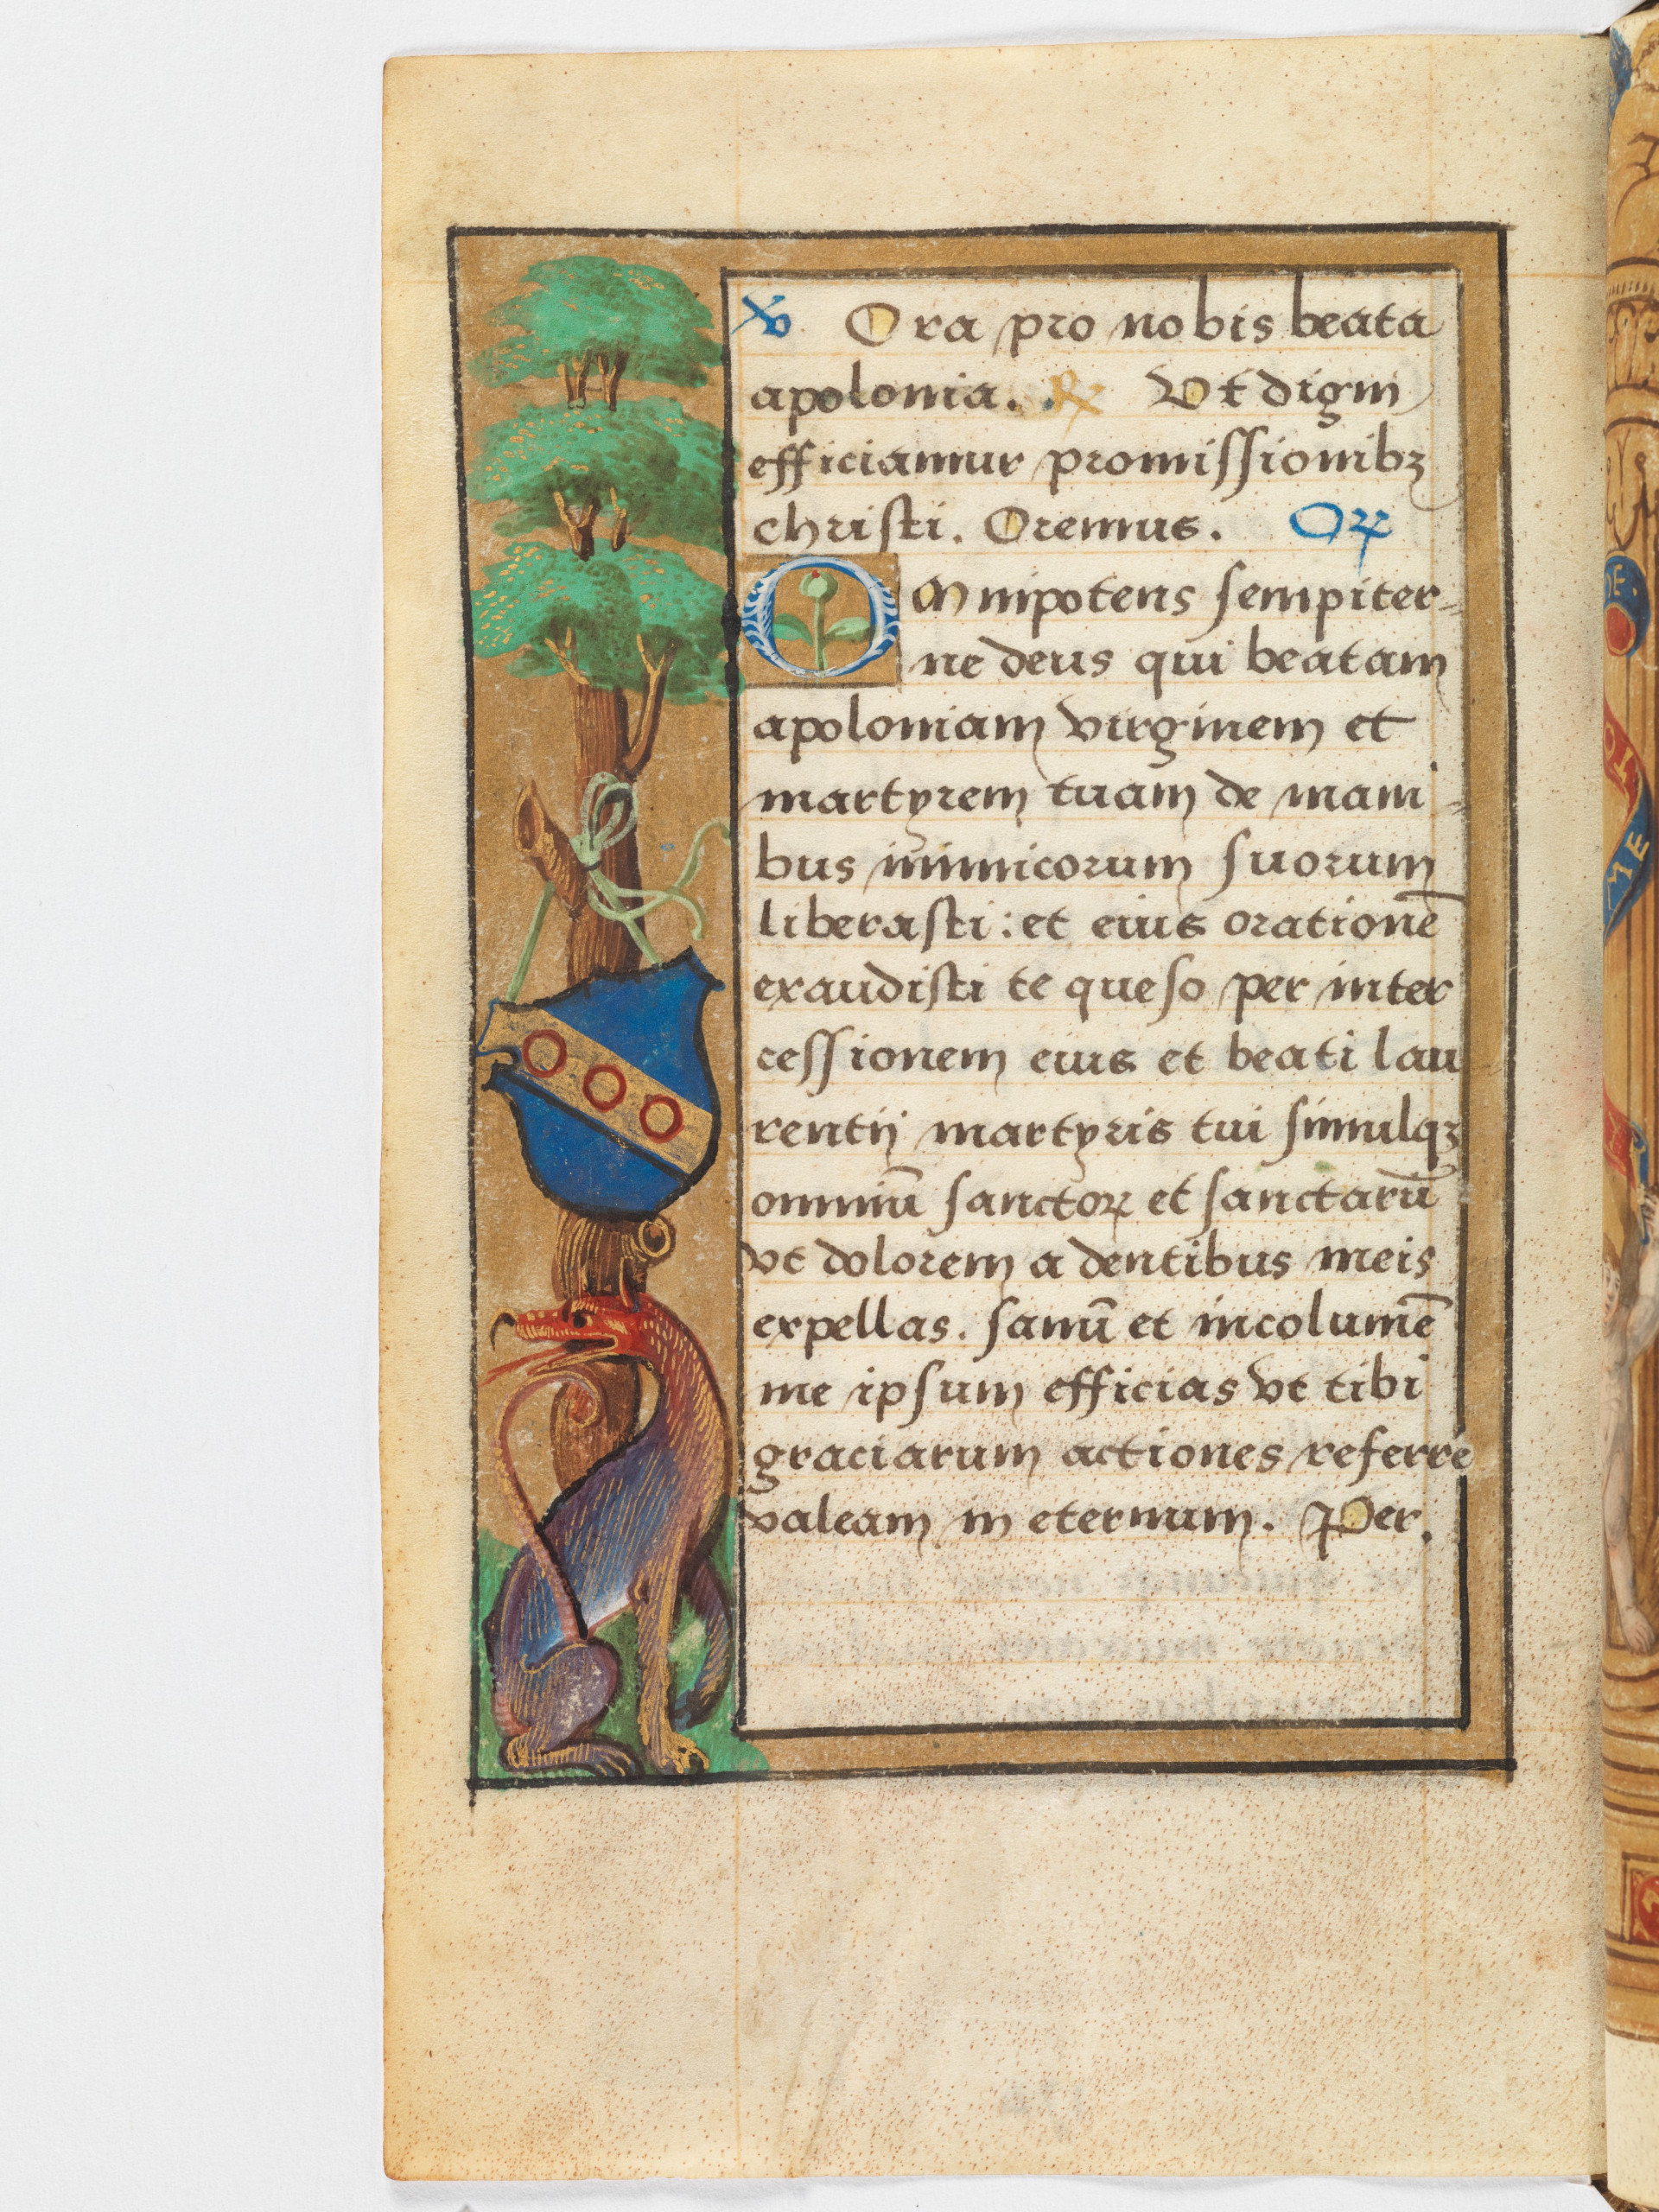 ℣ Ora pro nobis beata
apolonia. ℟ Vt digni
efficiamur promissionibꝫ
christi. Oremus. Oꝝ
OMnipotens sempiter=
ne deus qui beatam
apoloniam virginem et
martyrem tuam de mani=
bus inimicorum suorum
liberasti: et eius orationē
exaudisti te queso per inter
cessionem eius et beati lau
rentij martyris tui simulqꝫ
omniū sanctoꝝ et sanctarū
vt dolorem a dentibus meis
expellas. sanū et incolumē
me ipsum efficias vt tibi
graciarum actiones referre
valeam in eternum. Per.
DE.
ME